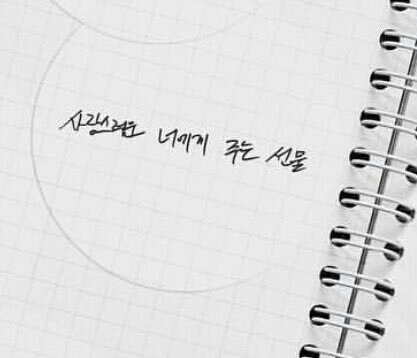 사랑스러운 너에게 주는 선물